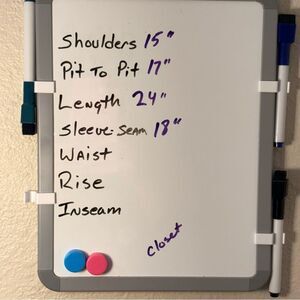 Shoulders 15"
Pit To Pit 17"
Length 24"
Sleeve Seam 18"
Waist
Rise
Inseam
closet